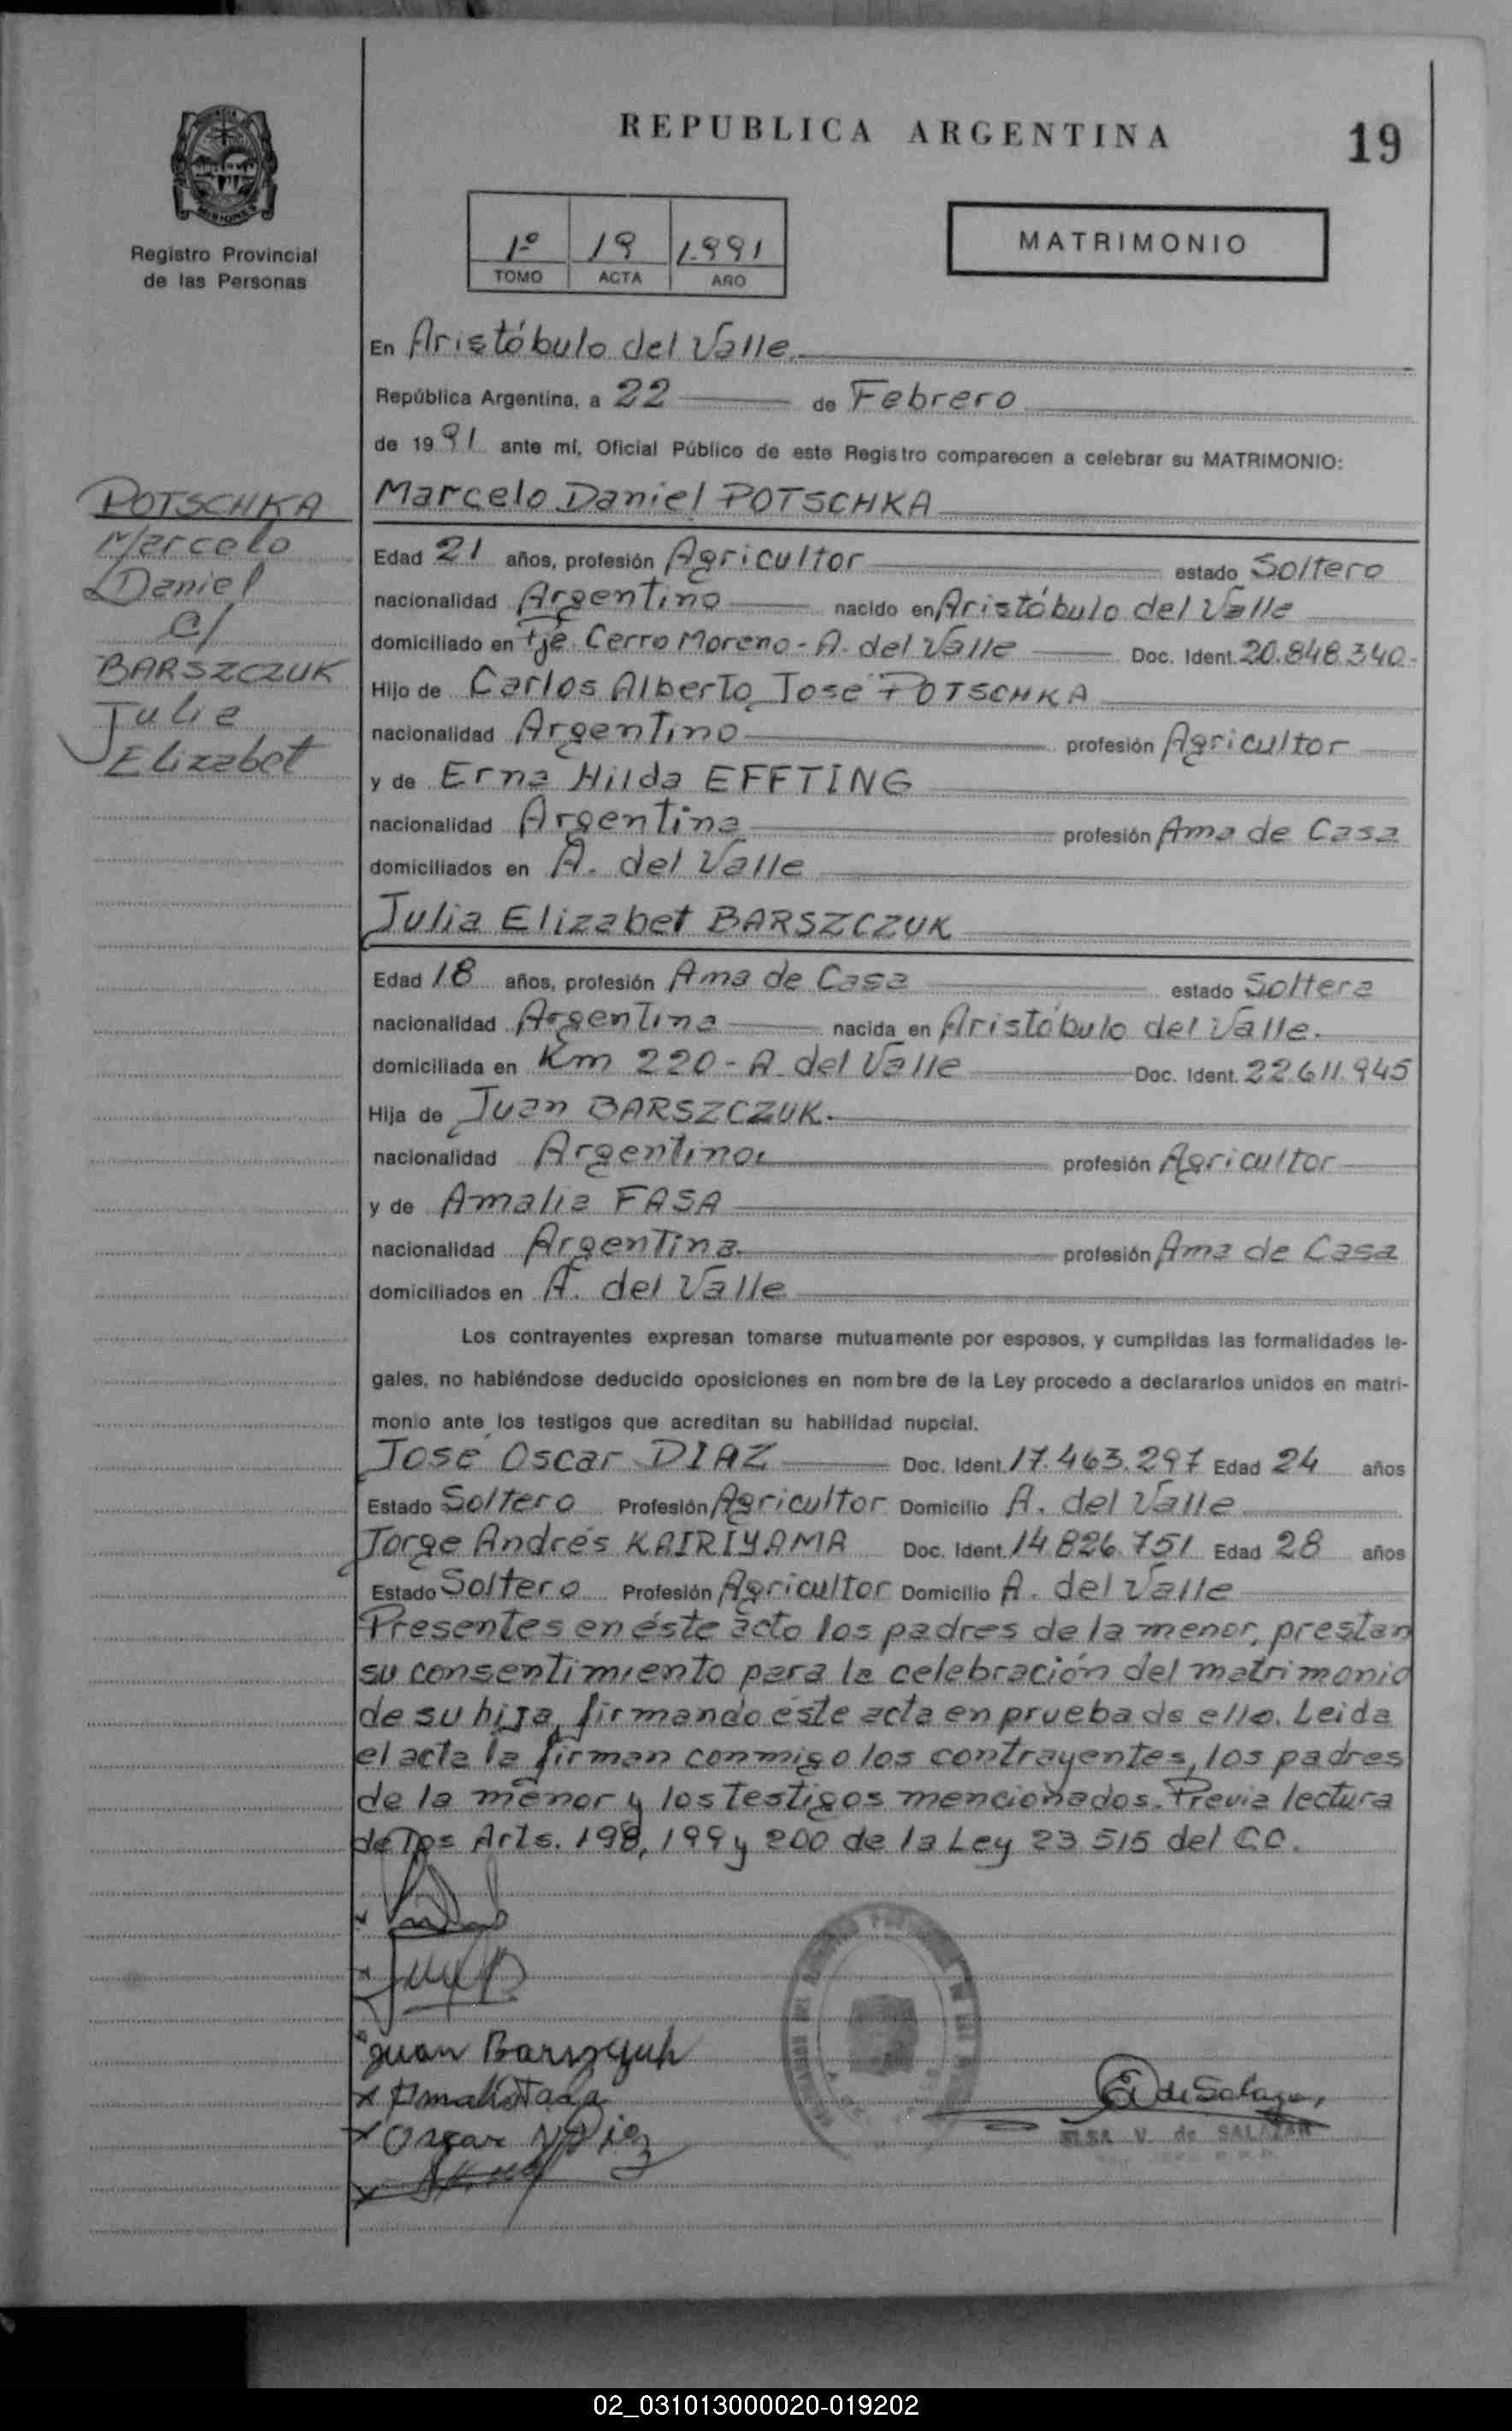 REPUBLICA ARGENTINA
19
MISIONES
Registro Provincial
de las Personas
1º 19 1.991
TOMO ACTA AÑO
MATRIMONIO
En Aristóbulo del Valle.
República Argentina, a 22 de Febrero
de 1991 ante mí, Oficial Público de este Registro comparecen a celebrar su MATRIMONIO:
POTSCHKA
Marcelo
Daniel
c/
BARSZCZUK
Julia
Elizabet
Marcelo Daniel POTSCHKA
Edad 21 años, profesión Agricultor estado Soltero
nacionalidad Argentino nacido en Aristóbulo del Valle
domiciliado en tje. Cerro Moreno - A. del Valle Doc. Ident. 20.848.340.-
Hijo de Carlos Alberto José POTSCHKA
nacionalidad Argentino profesión Agricultor
y de Erna Hilda EFFTING
nacionalidad Argentina profesión Ama de Casa
domiciliados en A. del Valle
Julia Elizabet BARSZCZUK
Edad 18 años, profesión Ama de Casa estado Soltera
nacionalidad Argentina nacida en Aristóbulo del Valle.
domiciliada en Km 220 - A. del Valle Doc. Ident. 22.611.945
Hija de Juan BARSZCZUK.
nacionalidad Argentino. profesión Agricultor
y de Amalia FASA
nacionalidad Argentina profesión Ama de Casa
domiciliados en A. del Valle
Los contrayentes expresan tomarse mutuamente por esposos, y cumplidas las formalidades le-
gales, no habiéndose deducido oposiciones en nombre de la Ley procedo a declararlos unidos en matri-
monio ante los testigos que acreditan su habilidad nupcial.
José Oscar DIAZ Doc. Ident. 17.463.297 Edad 24 años
Estado Soltero Profesión Agricultor Domicilio A. del Valle
Jorge Andrés KAIRIYAMA Doc. Ident. 14.826.751 Edad 28 años
Estado Soltero Profesión Agricultor Domicilio A. del Valle
Presentes en éste acto los padres de la menor, prestan
su consentimiento para la celebración del matrimonio
de su hija, firmando éste acta en prueba de ello. Leida
el acta la firman conmigo los contrayentes, los padres
de la menor y los testigos mencionados. Previa lectura
de los Arts. 198, 199 y 200 de la Ley 23 515 del C.C.
Juan Barszczuk
Amalia Fasa
Oscar Diaz
E. V. de Salazar
ELSA V. de SALAZAR
02_031013000020-019202